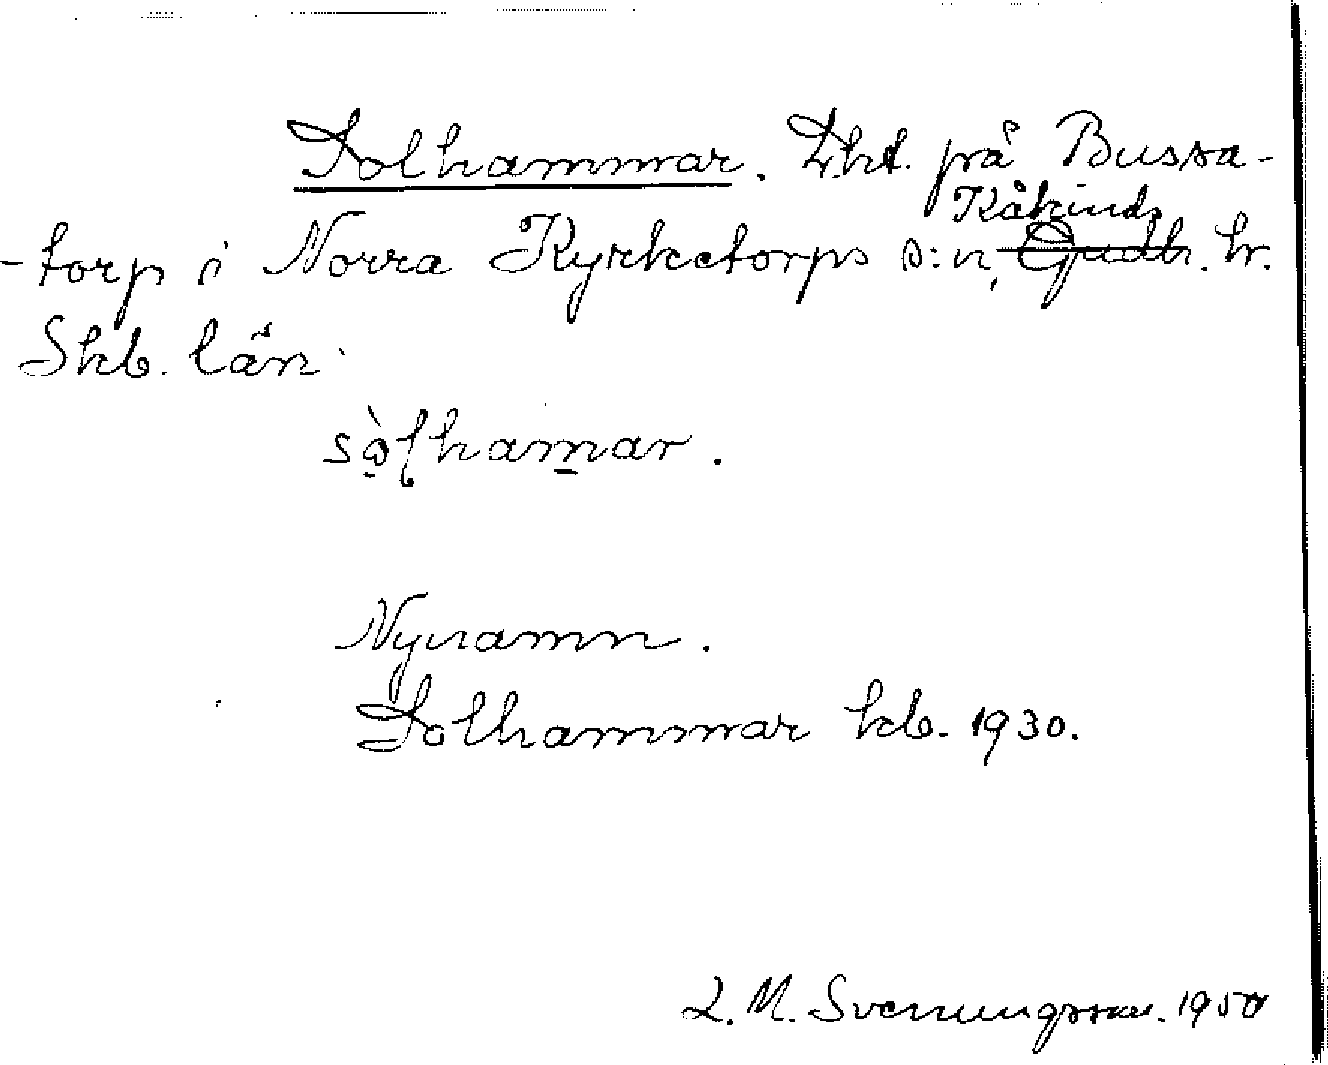 Solhammar. Lht. på Bussa-
Kåkinds
-torp i Norra Kyrketorps s:n, Gudh. hr.
Skb. län
sòlhamar.
Nynamn.
Solhammar kb. 1930.
L. M. Svenungsson. 1950